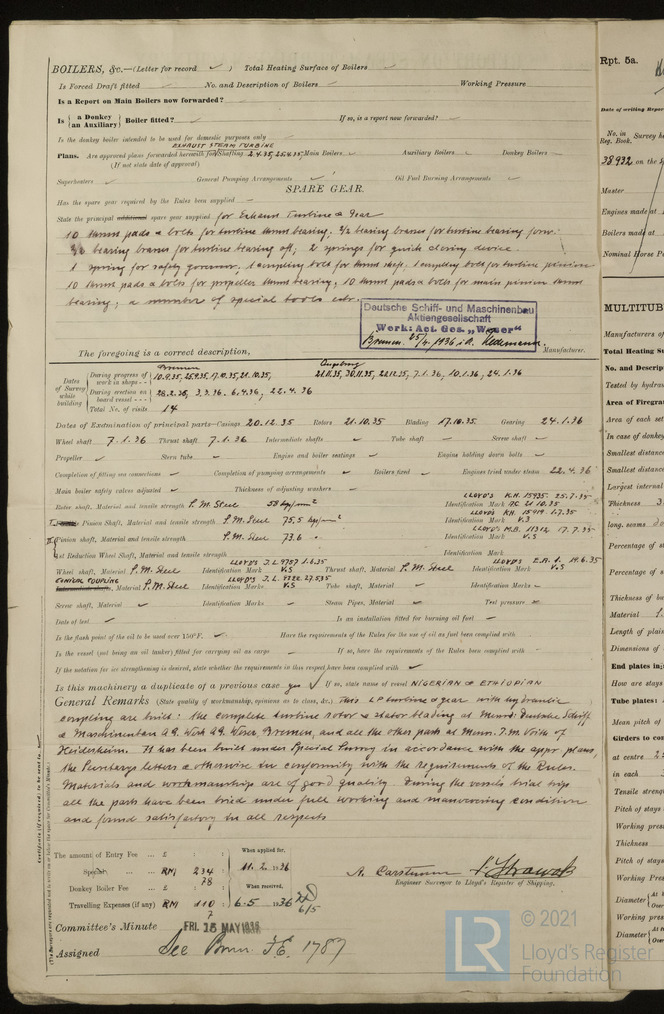 BOILERS, &c.—(Letter for record ✓ ) Total Heating Surface of Boilers
Is Forced Draft fitted No. and Description of Boilers Working Pressure
Is a Report on Main Boilers now forwarded?
Is { a Donkey / an Auxiliary } Boiler fitted? If so, is a report now forwarded?
Is the donkey boiler intended to be used for domestic purposes only
EXHAUST STEAM TURBINE
Plans. Are approved plans forwarded herewith for Shafting 2.4.35, 25.4.35, Main Boilers Auxiliary Boilers Donkey Boilers
(If not state date of approval)
Superheaters General Pumping Arrangements Oil Fuel Burning Arrangements
SPARE GEAR.
Has the spare gear required by the Rules been supplied
State the principal additional spare gear supplied for Exhaust Turbine & Gear
10 thrust pads & bolts for turbine thrust bearing; 2/2 bearing brasses for turbine bearing forw.
2/2 bearing brasses for turbine bearing aft; 2 springs for quick closing device
1 spring for safety governor, 1 coupling bolt for thrust shaft, 1 coupling bolt for turbine pinion
10 thrust pads & bolts for propeller thrust bearing, 10 thrust pads & bolts for main pinion thrust
bearing; a number of special tools etc.
Deutsche Schiff- und Maschinenbau
Aktiengesellschaft
Werk: Act. Ges. „Weser"
Bremen 25/4. 1936
The foregoing is a correct description, Manufacturer.
Bremen Augsburg
Dates of Survey while building
During progress of work in shops - - 10.9.35, 25.9.35, 17.10.35, 21.10.35, 21.11.35, 30.11.35, 20.12.35, 7.1.36, 10.1.36, 24.1.36
During erection on board vessel - - - 28.2.36, 3.3.36, 6.4.36, 22.4.36
Total No. of visits 14
Dates of Examination of principal parts—Casings 20.12.35 Rotors 21.10.35 Blading 17.10.35. Gearing 24.1.36
Wheel shaft 7.1.36 Thrust shaft 7.1.36 Intermediate shafts Tube shaft Screw shaft
Propeller Stern tube Engine and boiler seatings Engine holding down bolts
Completion of fitting sea connections Completion of pumping arrangements Boilers fixed Engines tried under steam 22.4.36
Main boiler safety valves adjusted Thickness of adjusting washers
Rotor shaft, Material and tensile strength S.M. Steel 58 kg/mm² Identification Mark
Pinion Shaft, Material and tensile strength S.M. Steel 75,5 kg/mm² Identification Mark
Pinion shaft, Material and tensile strength S.M. Steel 73.6 " Identification Mark LLOYD'S M.B. 11312 17.7.35 V.S
1st Reduction Wheel Shaft, Material and tensile strength Identification Mark
Wheel shaft, Material S.M. Steel Identification Mark LLOYD'S J.L 9757 1.6.35 V.S Thrust shaft, Material S.M. Steel Identification Mark LLOYD'S 19.6.35 V.S
CONICAL COUPLING
Intermediate shafts, Material S.M. Steel Identification Marks LLOYD'S J.L. 27.5.35 V.S Tube shaft, Material Identification Marks
Screw shaft, Material Identification Marks Steam Pipes, Material Test pressure
Date of test Is an installation fitted for burning oil fuel
Is the flash point of the oil to be used over 150°F. Have the requirements of the Rules for the use of oil as fuel been complied with
Is the vessel (not being an oil tanker) fitted for carrying oil as cargo If so, have the requirements of the Rules been complied with
If the notation for ice strengthening is desired, state whether the requirements in this respect have been complied with
Is this machinery a duplicate of a previous case yes ✓ If so, state name of vessel NIGERIAN & ETHIOPIAN
General Remarks (State quality of workmanship, opinions as to class, &c.) This LP turbine & gear with hydraulic
coupling are built: the complete turbine rotor & stator blading at Messrs Deutsche Schiff
& Maschinenbau A.G. Werk A.G. Weser, Bremen, and all the other parts at Messrs. J.M. Voith of
Heidenheim. It has been built under Special Survey in accordance with the appr. plans,
the Secretarys letters & otherwise in conformity with the requirements of the Rules.
Materials and workmanship are of good quality. During the vessels trial trip
all the parts have been tried under full working and manoeuvring condition
and found satisfactory in all respects
The amount of Entry Fee ... £ : : When applied for,
Special ... ... RM 234 : 11.2.1936
78
Donkey Boiler Fee ... £ : : When received,
Travelling Expenses (if any) RM 110 : 6.5 1936
7
6/5
A. Carstensen
Engineer Surveyor to Lloyd's Register of Shipping.
Committee's Minute FRI. 15 MAY 1936
Assigned See Bmn. F.E. 1787
Rpt. 5a.
Date of writing Report
No. in Reg. Book. Survey he
38932 on the
Master
Engines made at
Boilers made at
Nominal Horse P
MULTITUB
Manufacturers o
Total Heating Su
No. and Descrip
Tested by hydrau
Area of Firegra
Area of each set
In case of donkey
Smallest distance
Smallest distance
Largest internal
Thickness
long. seams
Percentage of s
Percentage of s
Thickness of bo
Material
Length of plain
Dimensions of
End plates in
How are stays
Tube plates:
Mean pitch of
Girders to com
at centre
in each
Tensile streng
Pitch of stays
Working press
Thickness
Pitch of stays
Working Pres
Diameter { At Over
Working pres
Diameter { At Over
LR © 2021
Lloyd's Register
Foundation